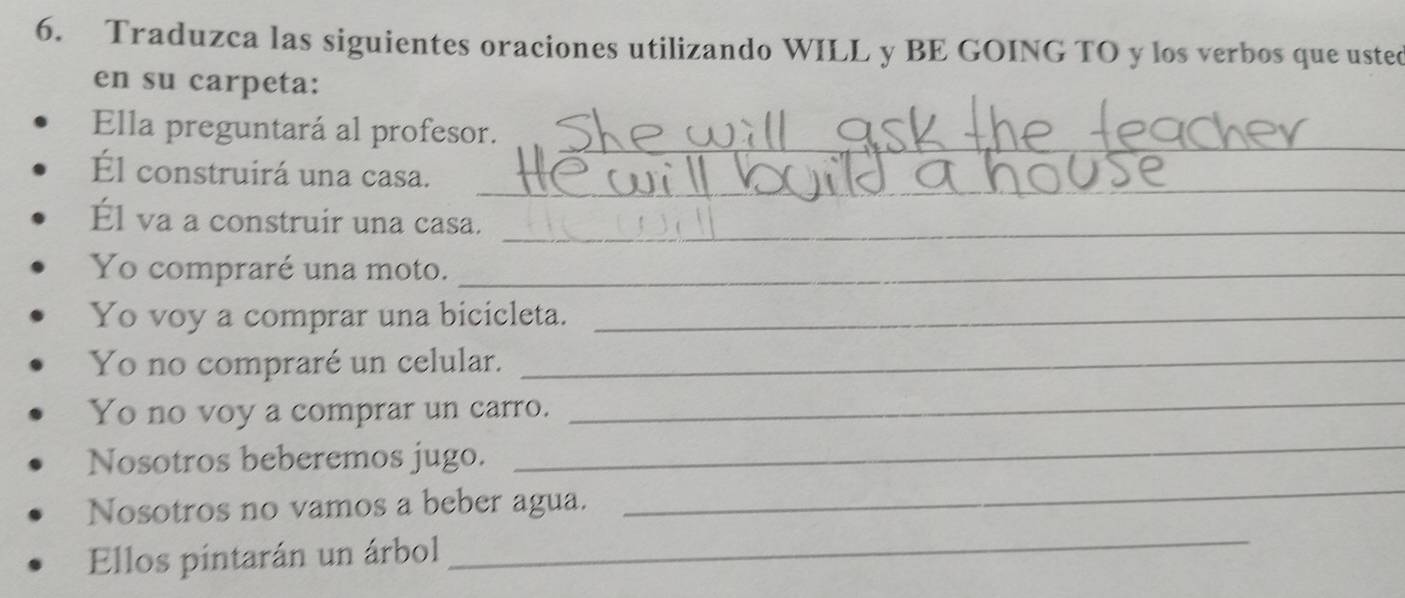 6. Traduzca las siguientes oraciones utilizando WILL y BE GOING TO y los verbos que usted
en su carpeta:
• Ella preguntará al profesor. She will ask the teacher
• Él construirá una casa. He will build a house
• Él va a construir una casa. He will
• Yo compraré una moto.
• Yo voy a comprar una bicicleta.
• Yo no compraré un celular.
• Yo no voy a comprar un carro.
• Nosotros beberemos jugo.
• Nosotros no vamos a beber agua.
• Ellos pintarán un árbol